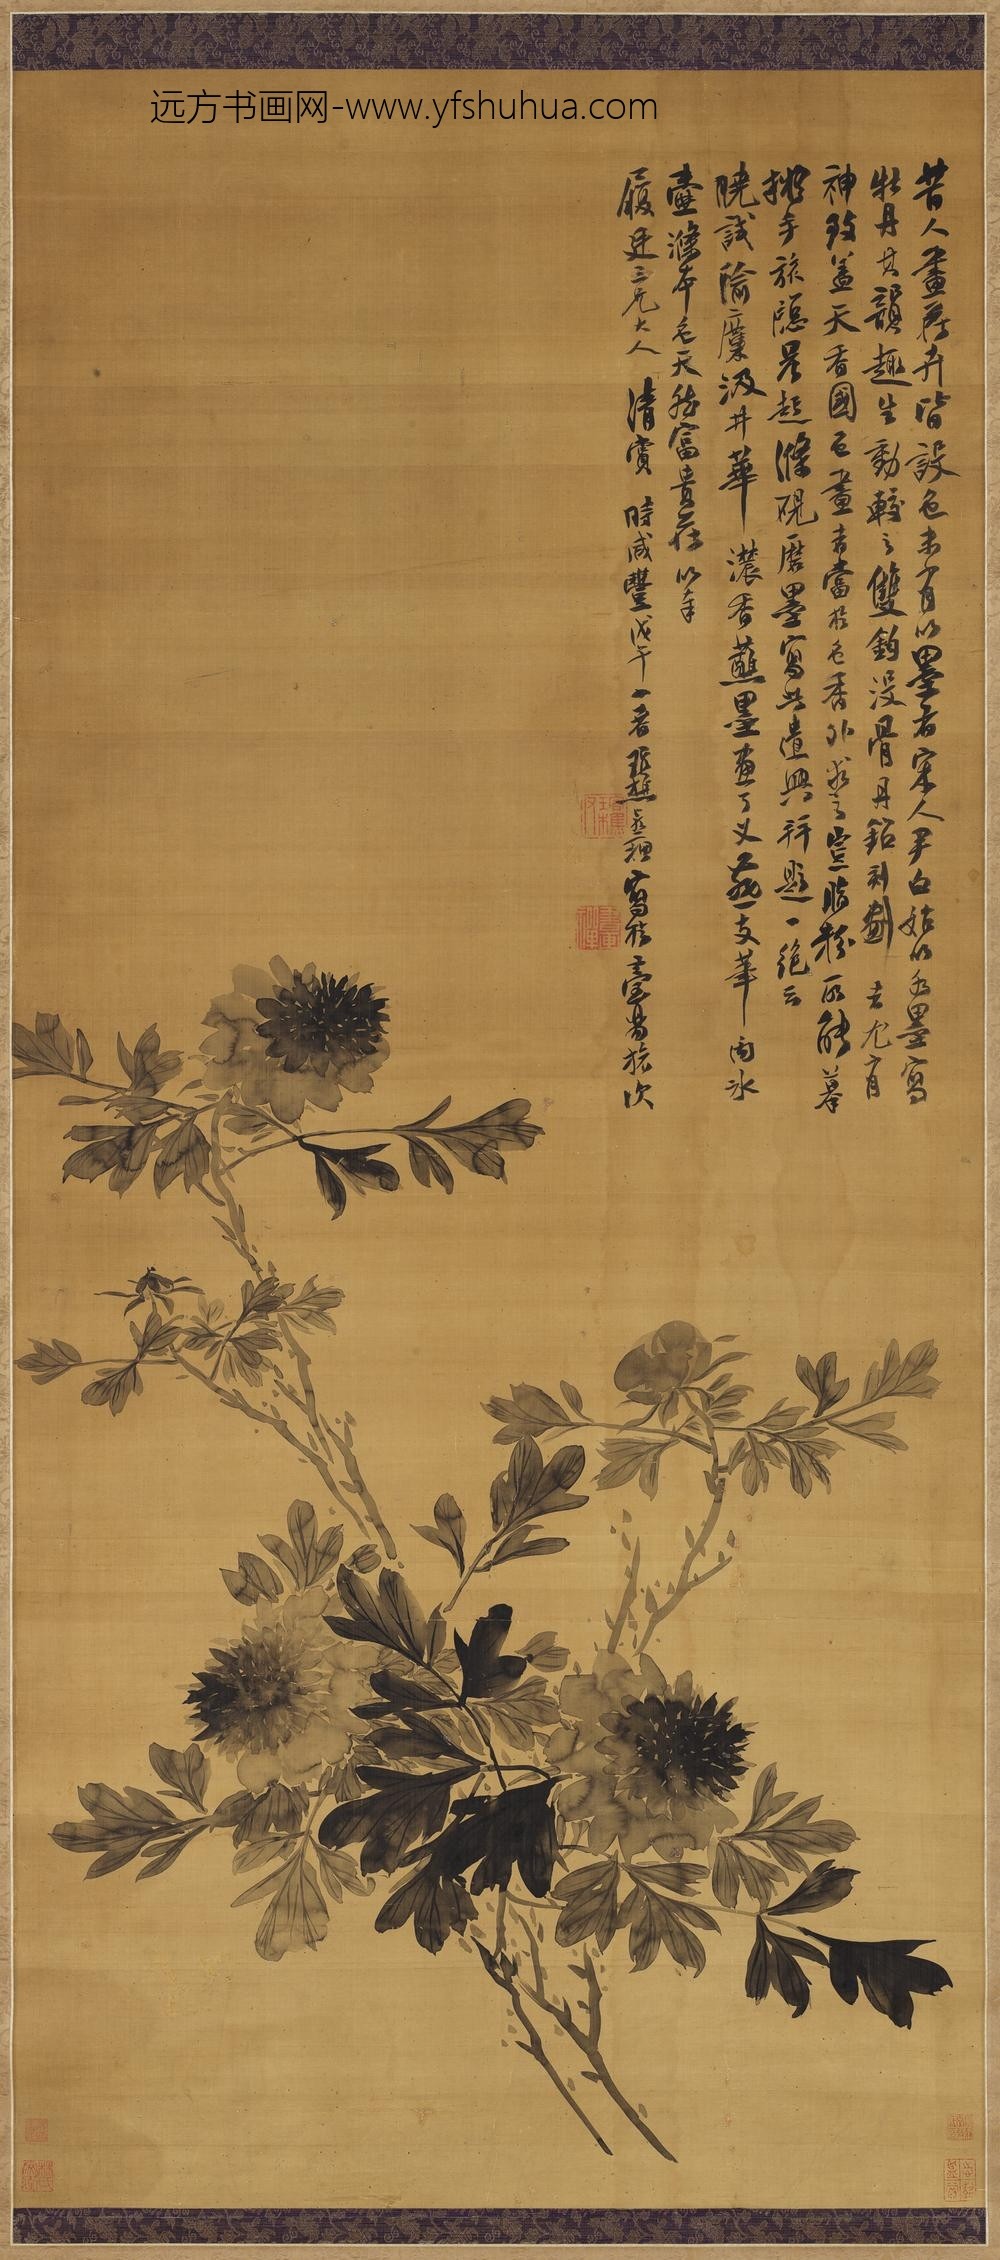 远方书画网-www.yfshuhua.com
昔人畫花卉皆設色未有以墨者宋人尹白始以水墨寫
牡丹其韻趣生動較之雙鉤沒骨丹鉛刻劃者尤有
神致蓋天香國色畫者當於色香外求之豈脂粉所能摹
擬乎旅隱晨起滌硯磨墨寫此遣興并題一絕云
曉試隃糜汲井華濃香蘸墨畫了义一支華向冰
壺滌本色天然富貴花以奉
履廷三兄大人清賞時咸豐戊午一春寫於臺陽旅次